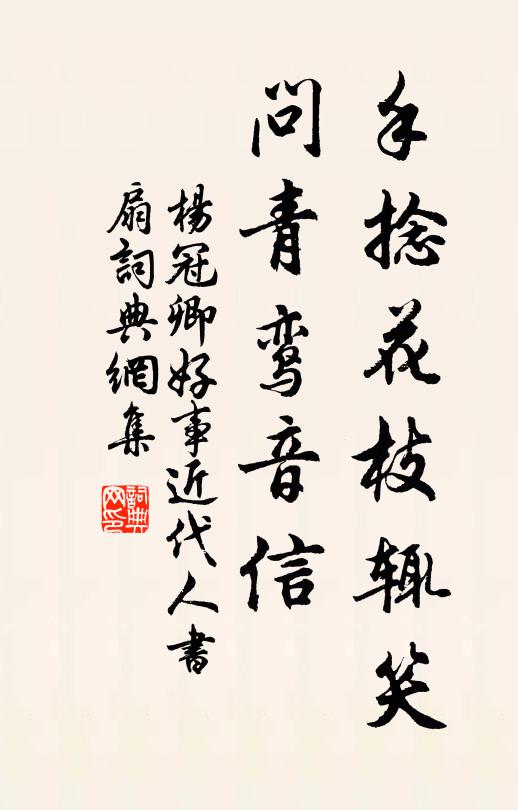 手捻花枝辄笑
问青鸾音信
楊冠卿好事近代人書
扇詞典網集
詞典网印